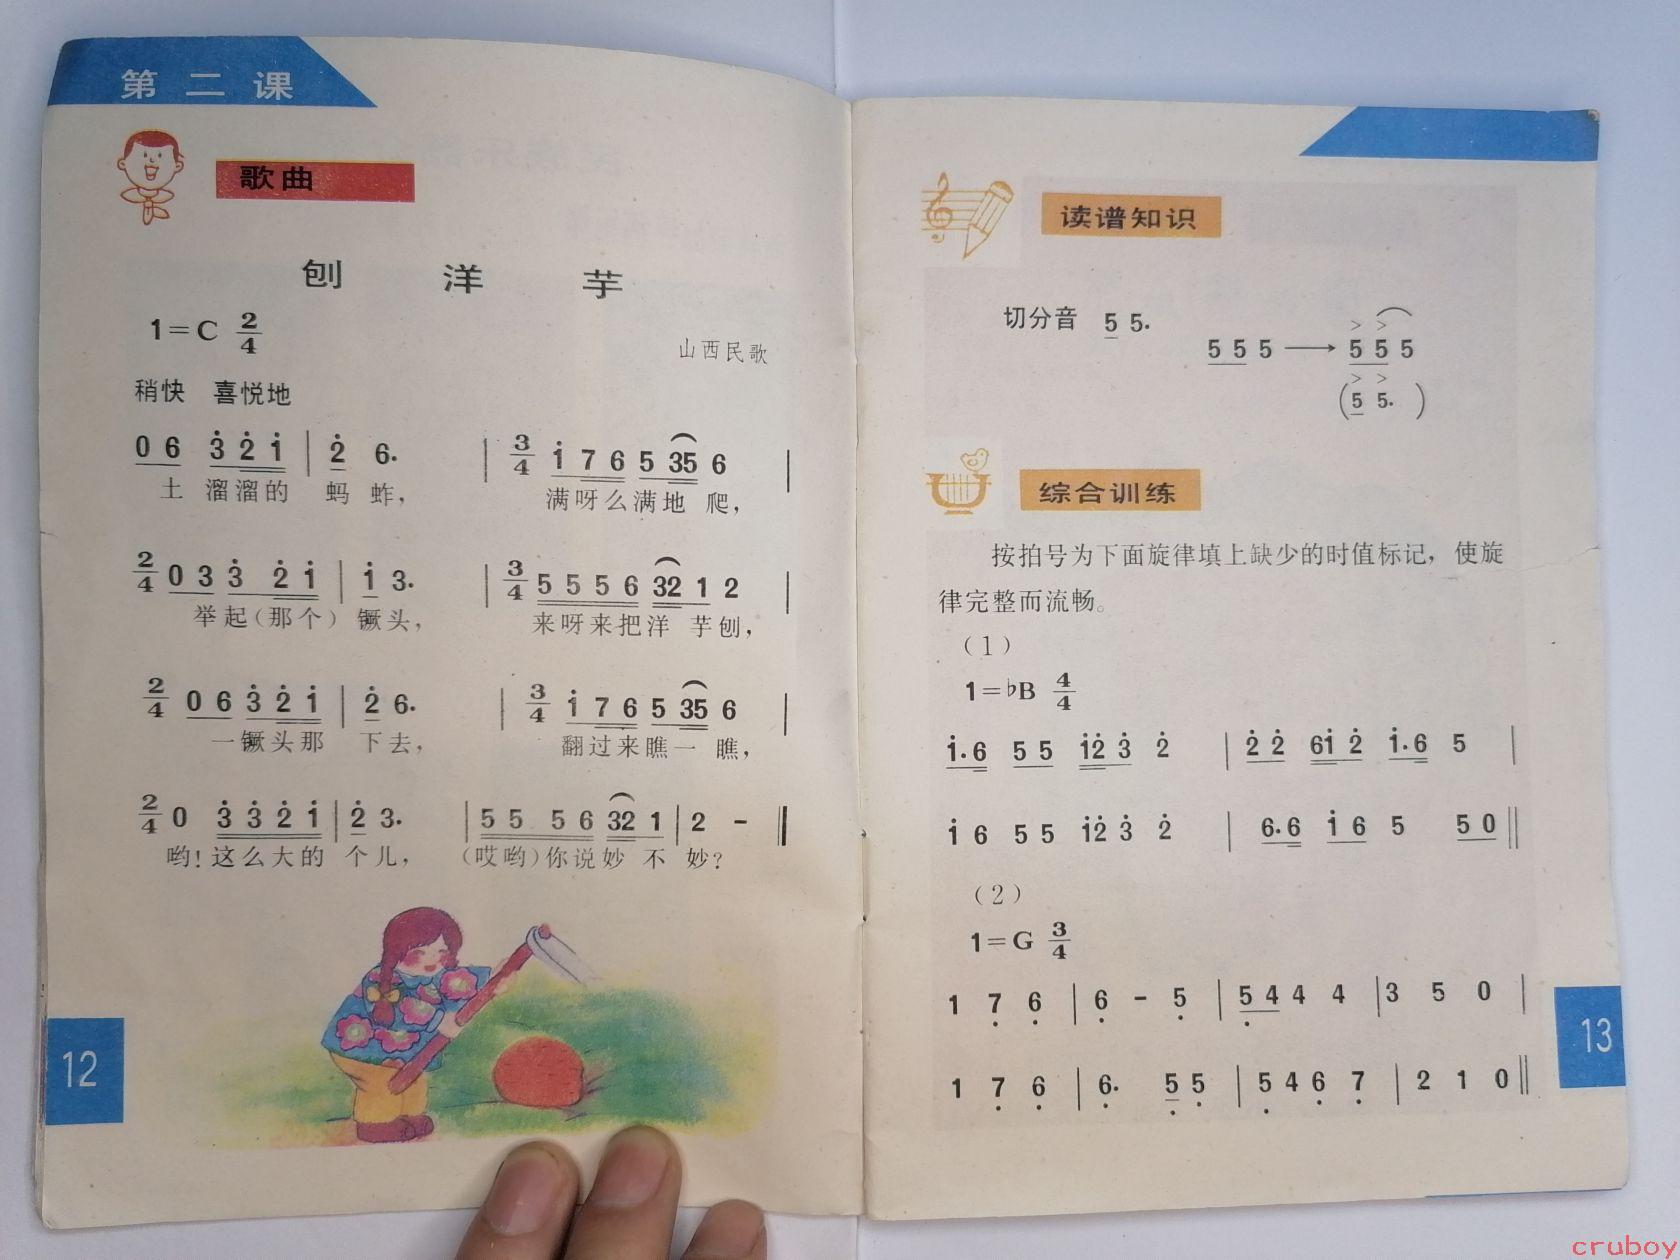 第二课
歌曲
刨 洋 芋
1=C 2/4
山西民歌
稍快 喜悦地
0 6 3̇ 2̇ 1̇ | 2̇ 6. | 3/4 1̇ 7 6 5 35 6 |
土 溜溜的 蚂 蚱, 满呀么满地 爬,
2/4 0 3 3̇ 2̇ 1̇ | 1̇ 3. | 3/4 5 5 5 6 32 1 2 |
举起(那个) 镢头, 来呀来把洋 芋刨,
2/4 0 6 3̇ 2̇ 1̇ | 2̇ 6. | 3/4 1̇ 7 6 5 35 6 |
一镢头那 下去, 翻过来瞧一 瞧,
2/4 0 3̇ 3̇ 2̇ 1̇ | 2̇ 3. | 5 5 5 6 32 1 | 2 - ‖
哟!这么大的 个儿, (哎哟)你说妙 不 妙?
12
读谱知识
切分音 5 5. 5 5 5 → 5 5 5
(5 5. )
综合训练
按拍号为下面旋律填上缺少的时值标记，使旋
律完整而流畅。
(1)
1=♭B 4/4
1̇.6 5 5 1̇2̇ 3̇ 2̇ | 2̇ 2̇ 61̇ 2̇ 1̇.6 5 |
1̇ 6 5 5 1̇2̇ 3̇ 2̇ | 6.6 1̇ 6 5 5 0 ‖
(2)
1=G 3/4
1 7̣ 6̣ | 6̣ - 5̣ | 5̣ 4 4 4 | 3 5 0 |
1 7̣ 6̣ | 6̣. 5̣ 5̣ | 5̣ 4 6̣ 7̣ | 2 1 0 ‖
13
cruboy